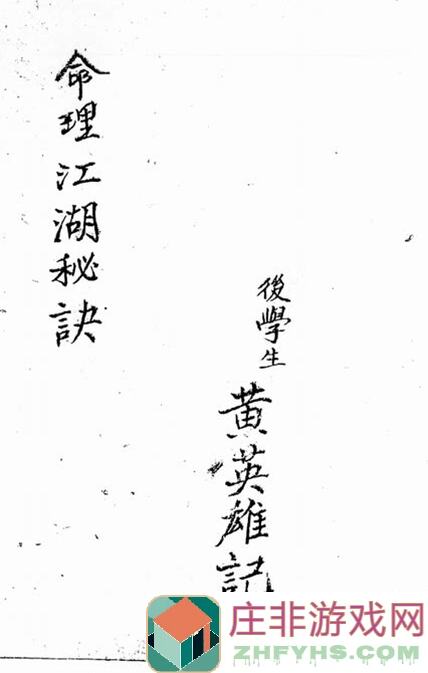 命理江湖秘訣
後學生
黄英雄記
庄非游戏网
ZHFYHS.COM